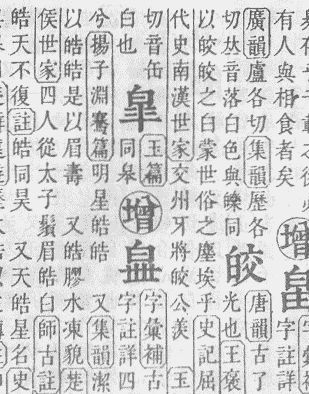 有人與相食者矣 增 字註詳
廣韻盧各切集韻歷各
切𠀤音落白色與皪同
皎 唐韻古了
光也王褒
以皎皎之白蒙世俗之塵埃乎史記屈
代史南漢世家交州牙將皎公羨 玉
切音缶
白也
玉篇
同皋
增 字彙補古
字註詳四
兮揚子淵騫篇明星皓皓 又集韻潔
以皓皓是以眉壽 又皓膠水凍貌楚
侯世家四人從太子鬚眉皓白師古註
皓天不復註皓同昊 又天皓星名史